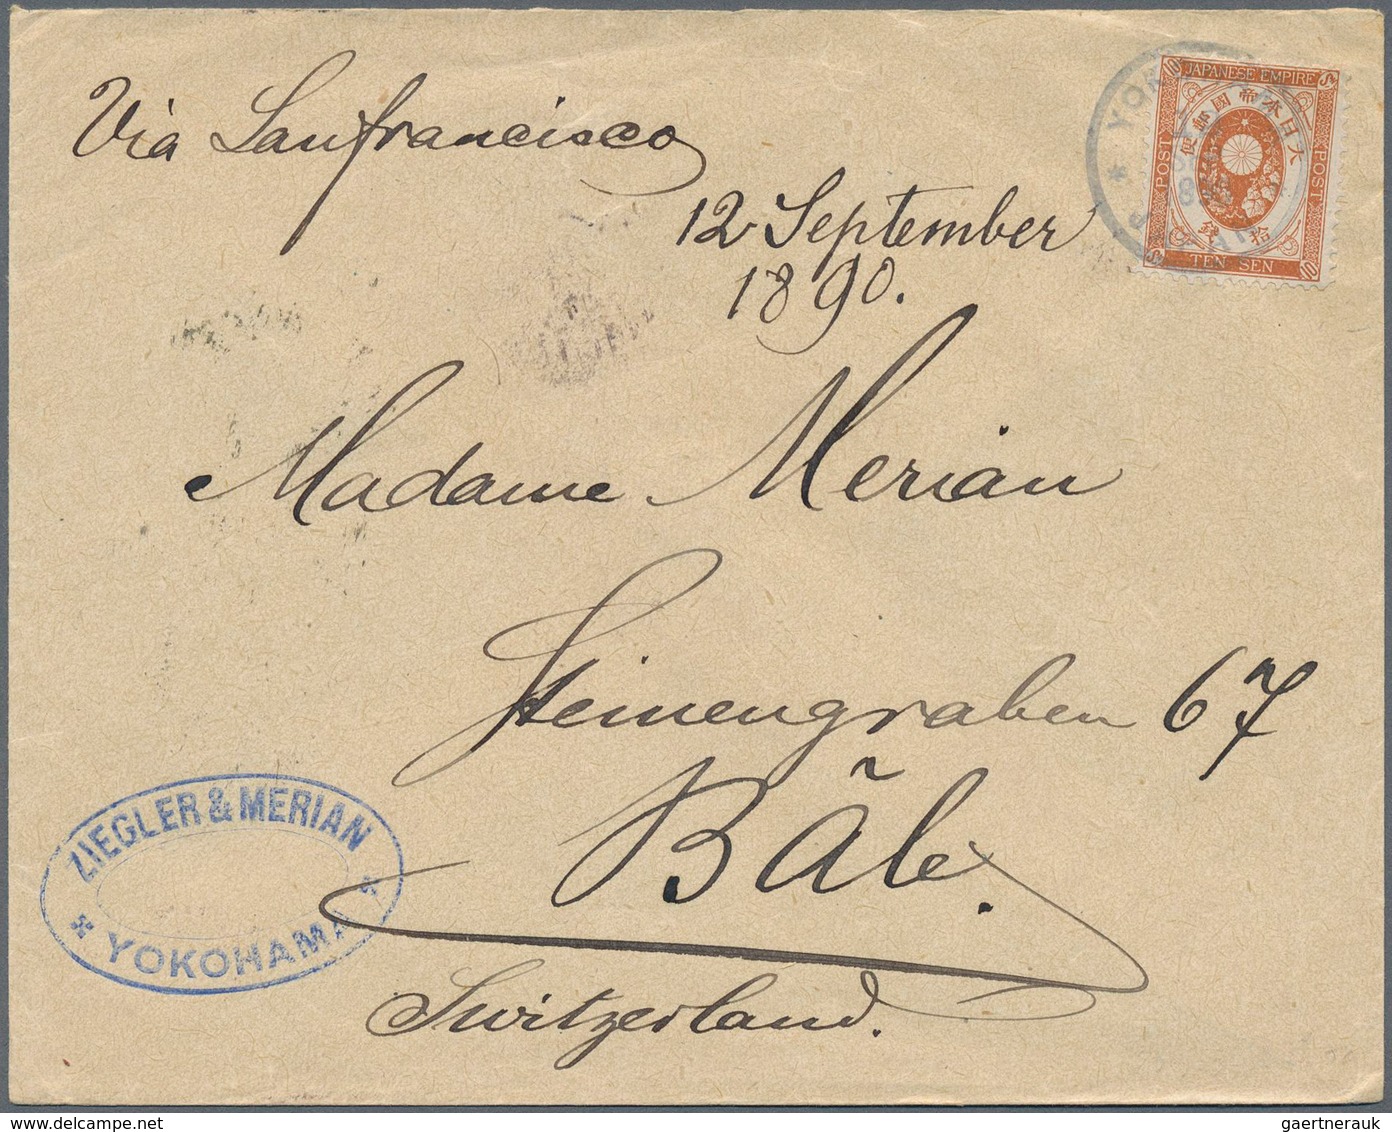 Via Sanfrancisco
12 September
1890.
JAPANESE EMPIRE
大日本帝國郵便
POST
POST
拾錢
TEN SEN
10
10
Madame Merian
Steinengraben 67
Bâle.
Switzerland.
ZIEGLER & MERIAN
YOKOHAMA
gaertnerauk